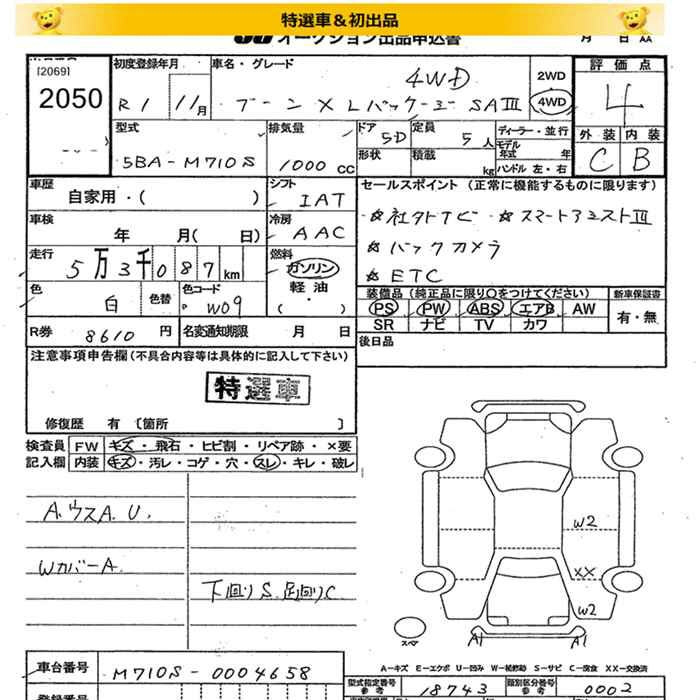 特選車＆初出品
JU オークション出品申込書
月 日 AA
[2069]
2050
初度登録年月
R1 11月
車名・グレード
4WD
ブーン X Lパッケージ SAⅢ
2WD
4WD
評価点
4
外装 内装
C B
型式
5BA-M710S
排気量
1000 CC
ドア
5D
形状
定員
5人
積載
kg
ディーラー・並行
モデル年式 年
ハンドル 左・右
車歴
自家用・( )
シフト
IAT
車検
年 月( 日)
冷房
AAC
走行
5万3千087km
燃料
ガソリン
軽油
・( )
色
白
色替
色コード
W09
R券 8610 円
名変通知期限 月 日
セールスポイント (正常に機能するものに限ります)
☆社外ナビ ☆スマートアシストⅢ
☆バックカメラ
☆ETC
装備品(純正品に限り○をつけてください)
PS PW ABS エアB AW
SR ナビ TV カワ
新車保証書
有・無
後日品
注意事項申告欄(不具合内容等は具体的に記入して下さい)
特選車
修復歴 有〔箇所 〕
検査員記入欄
FW キズ・飛石・ヒビ割・リペア跡・×要
内装 キズ・汚レ・コゲ・穴・スレ・キレ・破レ
A.ウスA.U.
WカバーA
下回りS 足回りC
W2
XX
W2
スペア
A1 A1
A-キズ E-エクボ U-凹み W-補修跡 S-サビ C-腐食 XX-交換済
車台番号 M710S-0004658
型式指定番号 参考 18743
類別区分番号 参考 0002
登録番号